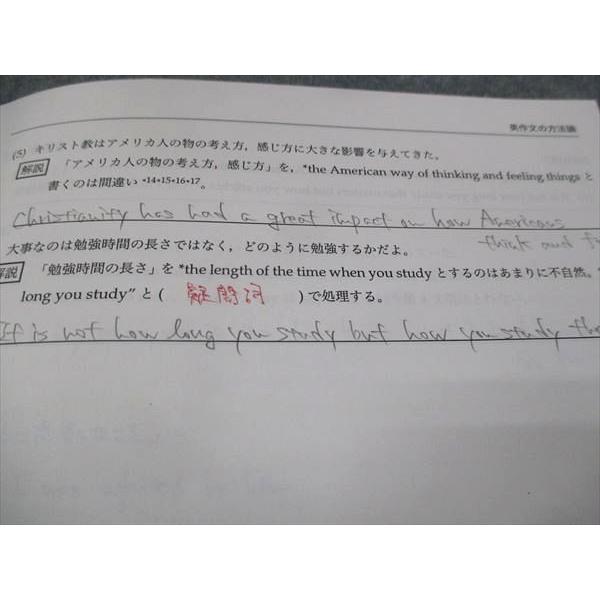 英作文の方法論
(5) キリスト教はアメリカ人の物の考え方，感じ方に大きな影響を与えてきた。
解説 「アメリカ人の物の考え方，感じ方」を，*the American way of thinking and feeling things と
書くのは間違い *14*15*16*17。
Christianity has had a great impact on how Americans
think and f
大事なのは勉強時間の長さではなく，どのように勉強するかだよ。
解説 「勉強時間の長さ」を *the length of the time when you study とするのはあまりに不自然。
long you study" と ( 疑問詞 ) で処理する。
It is not how long you study but how you study tha